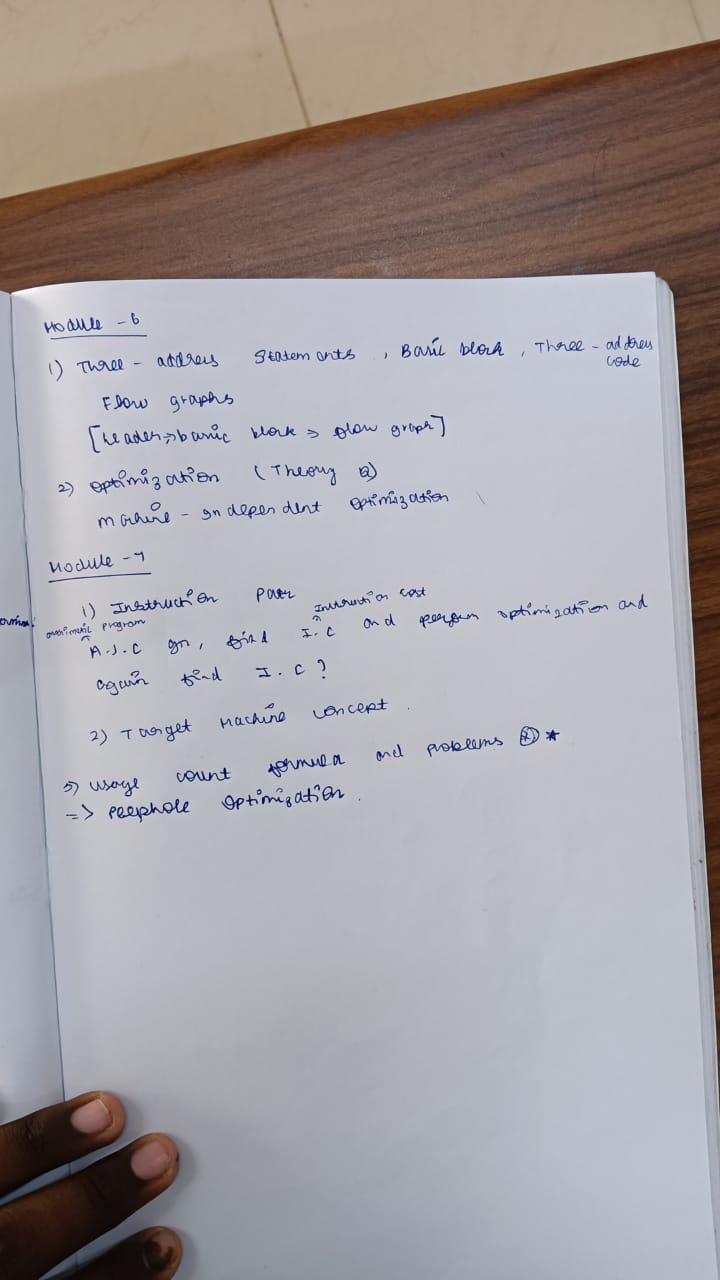 Module - 6
1) Three - address Statements , Basic block , Three - address code
Flow graphs
[Leader => basic block => flow graph]
2) optimization (Theory Q)
machine - Independent optimization
Module - 7
1) Instruction Part
arithmetic program
Instruction cost
A.S.C gn, find I.C and perform optimization and
again find I.C ?
2) Target Machine concept .
3) usage count formula and problems *
=> peephole optimization .